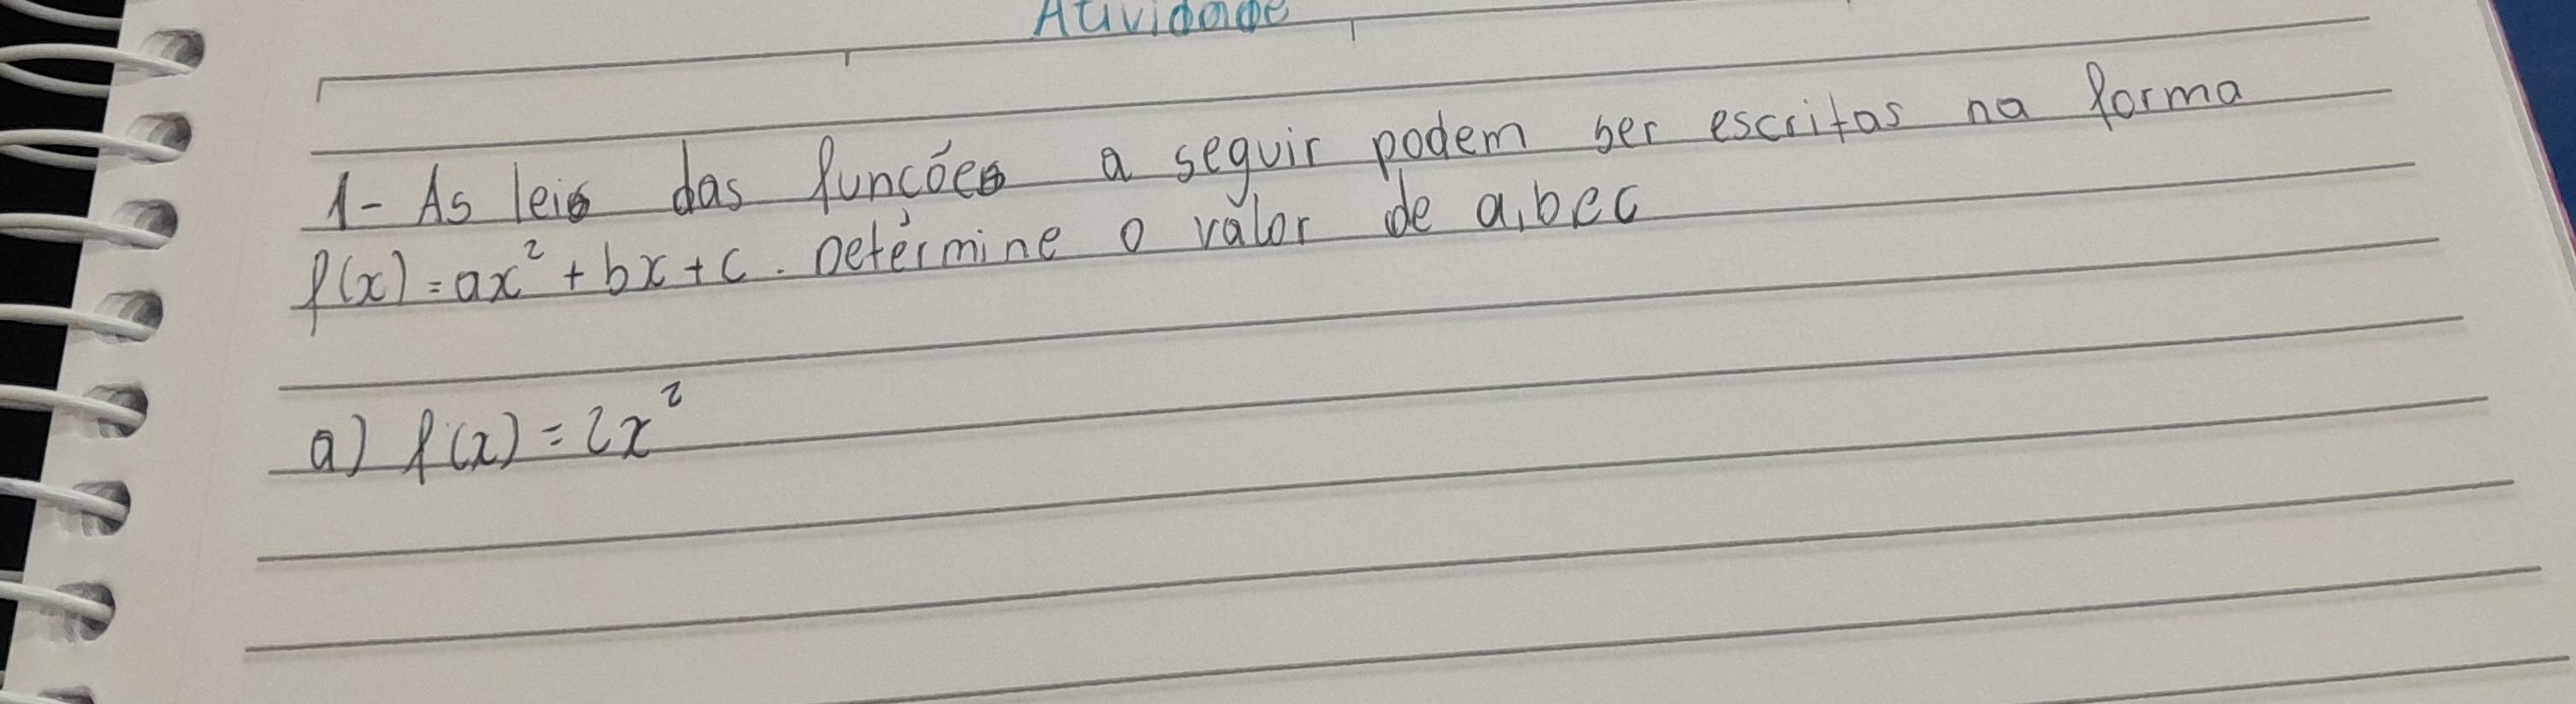 Atividade
1- As leis das funções a seguir podem ser escritas na forma
f(x)=ax² + bx + c. Determine o valor de a, b e c
a) f(x) = 2x²